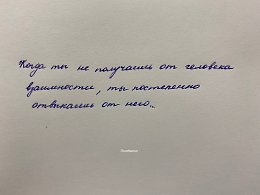 Когда ты не получаешь от человека
взаимности, ты постепенно
отвыкаешь от него...